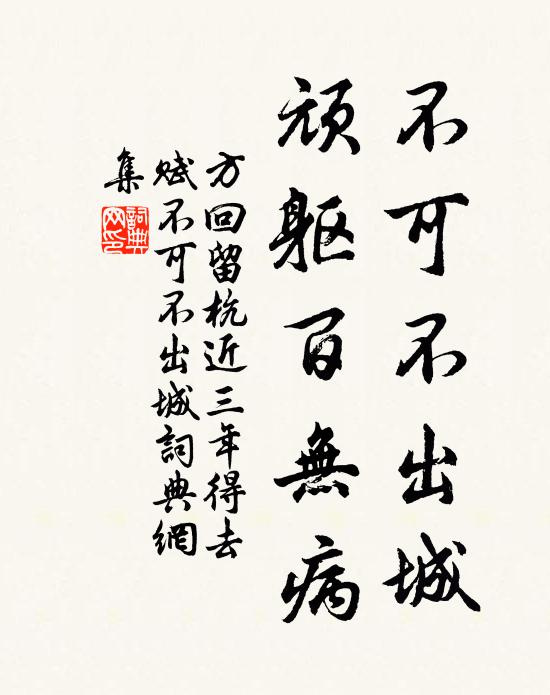 不可不出城
頑軀百無病
方回留杭近三年得去
賦不可不出城詞典網
集
詞典
网印